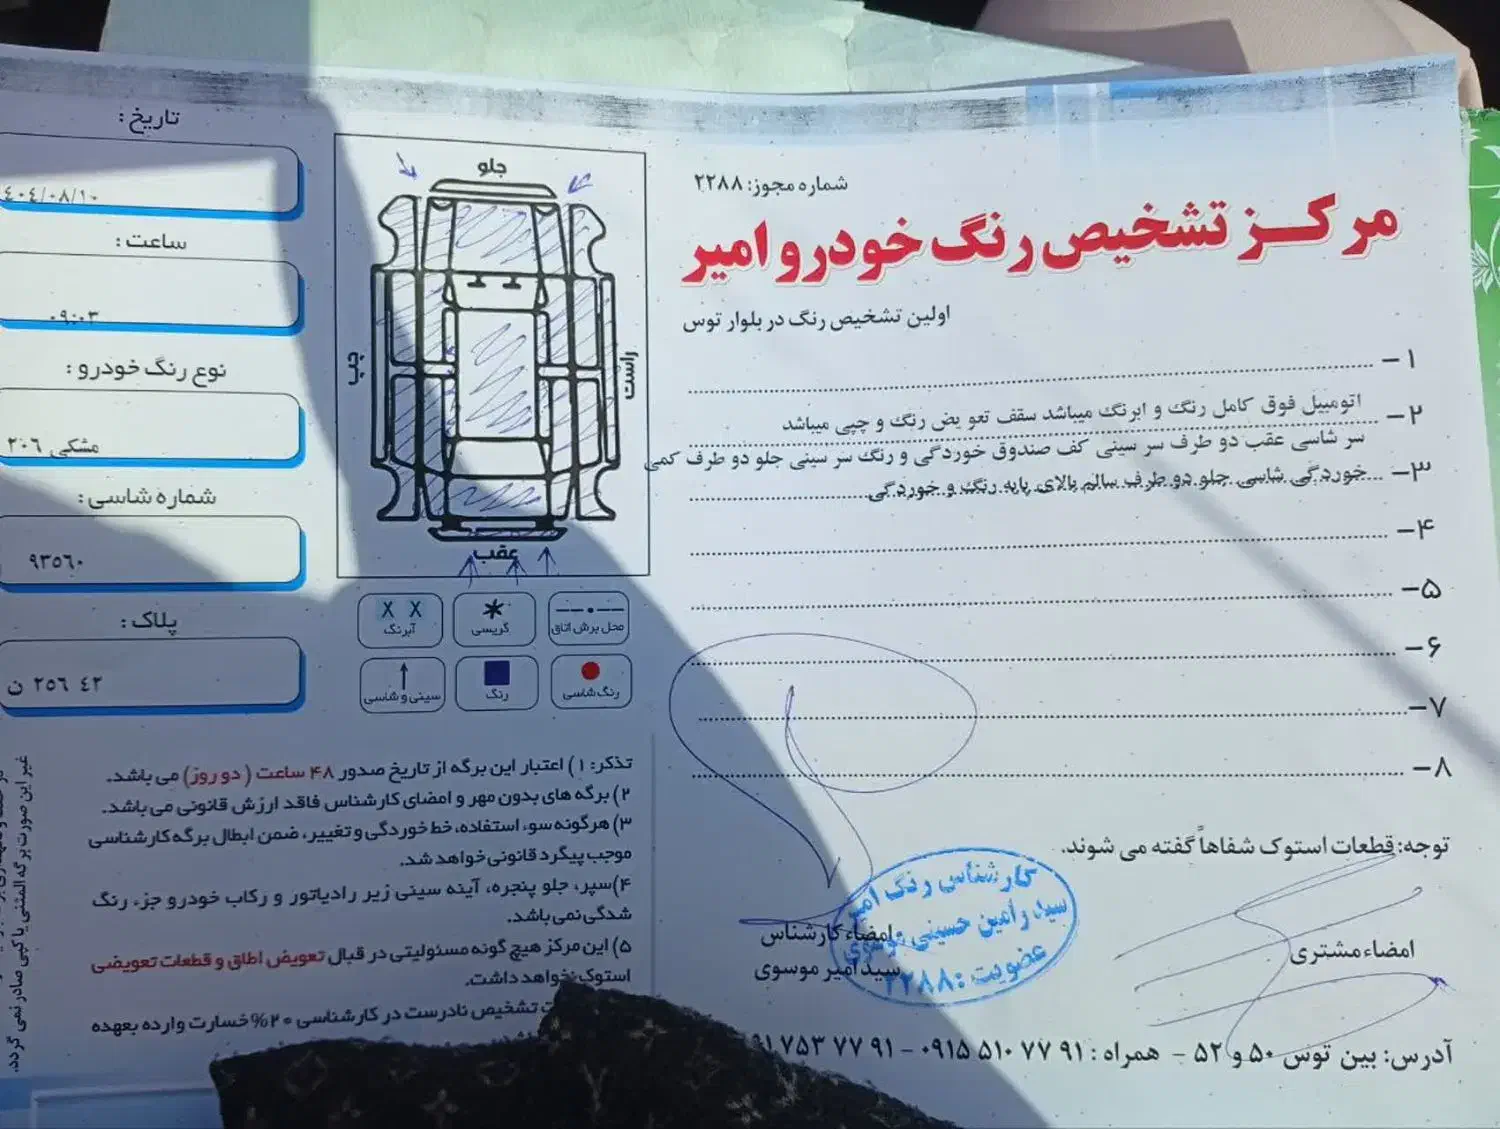 شماره مجوز: ۲۲۸۸
مرکز تشخیص رنگ خودرو امیر
اولین تشخیص رنگ در بلوار توس
۱-
۲- اتومبیل فوق کامل رنگ و ابرنگ میباشد سقف تعو یض رنگ و چپی میباشد
سر شاسی عقب دو طرف سر سینی کف صندوق خوردگی و رنگ سر سینی جلو دو طرف کمی
۳- خوردگی شاسی جلو دو طرف سالم بالای پایه رنگ و خوردگی
۴-
۵-
۶-
۷-
۸-
توجه: قطعات استوک شفاهاً گفته می شوند.
امضاء مشتری
امضاء کارشناس
سید امیر موسوی
کارشناس رنگ امیر
سید رامین حسینی موسوی
عضویت: ۲۲۸۸
آدرس: بین توس ۵۰ و ۵۲ - همراه: ۰۹۱۵ ۵۱۰ ۷۷ ۹۱ - ۷۵۳ ۷۷ ۹۱
جلو
چپ
راست
عقب
محل برش اتاق
گریسی
X X
آبرنگ
رنگ شاسی
رنگ
سینی و شاسی
تاریخ:
۴۰۴/۰۸/۱۰
ساعت:
۰۹:۰۳
نوع رنگ خودرو:
مشکی ۲۰۶
شماره شاسی:
۹۳۵۶۰
پلاک:
۴۲ ۲۵۶ ن
تذکر: ۱) اعتبار این برگه از تاریخ صدور ۴۸ ساعت (دو روز) می باشد.
۲) برگه های بدون مهر و امضای کارشناس فاقد ارزش قانونی می باشد.
۳) هرگونه سوء استفاده، خط خوردگی و تغییر، ضمن ابطال برگه کارشناسی
موجب پیگرد قانونی خواهد شد.
۴) سپر، جلو پنجره، آینه سینی زیر رادیاتور و رکاب خودرو جزء رنگ
شدگی نمی باشد.
۵) این مرکز هیچ گونه مسئولیتی در قبال تعویض اطاق و قطعات تعویضی
استوک نخواهد داشت.
تشخیص نادرست در کارشناسی ۲۰% خسارت وارده بعهده
غیر این صورت برگه المثنی یا کپی صادر نمی گردد.